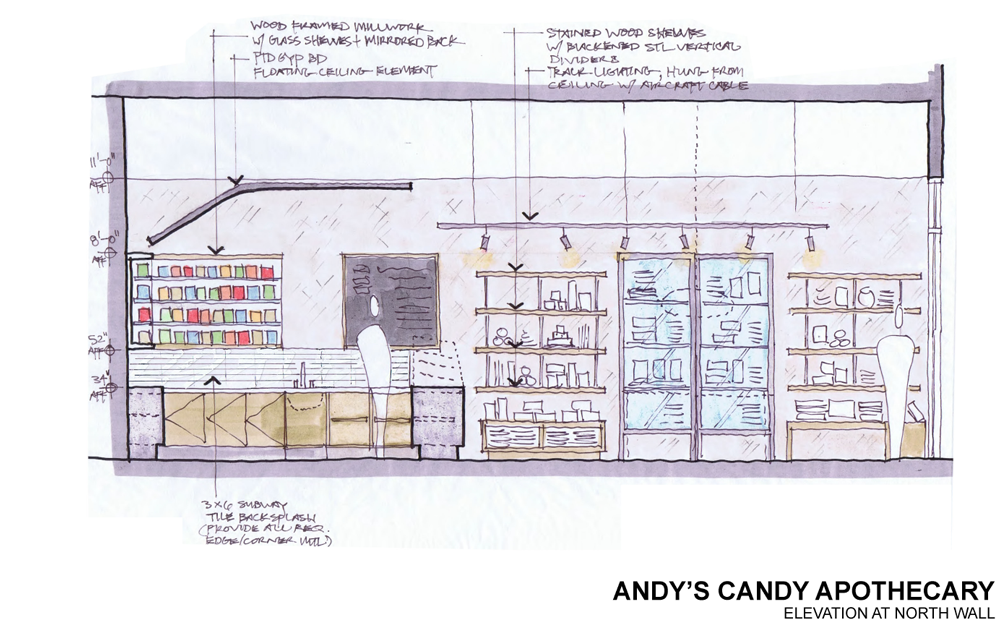 WOOD FRAMED MILLWORK
W/ GLASS SHELVES + MIRRORED BACK
PTD GYP BD
FLOATING CEILING ELEMENT
STAINED WOOD SHELVES
W/ BLACKENED STL VERTICAL
DIVIDERS
TRACK LIGHTING, HUNG FROM
CEILING W/ AIRCRAFT CABLE
11'-0"
AFF
8'-0"
AFF
52"
AFF
34"
AFF
3x6 SUBWAY
TILE BACKSPLASH
(PROVIDE ALL REQ.
EDGE/CORNER MTL)
ANDY'S CANDY APOTHECARY
ELEVATION AT NORTH WALL